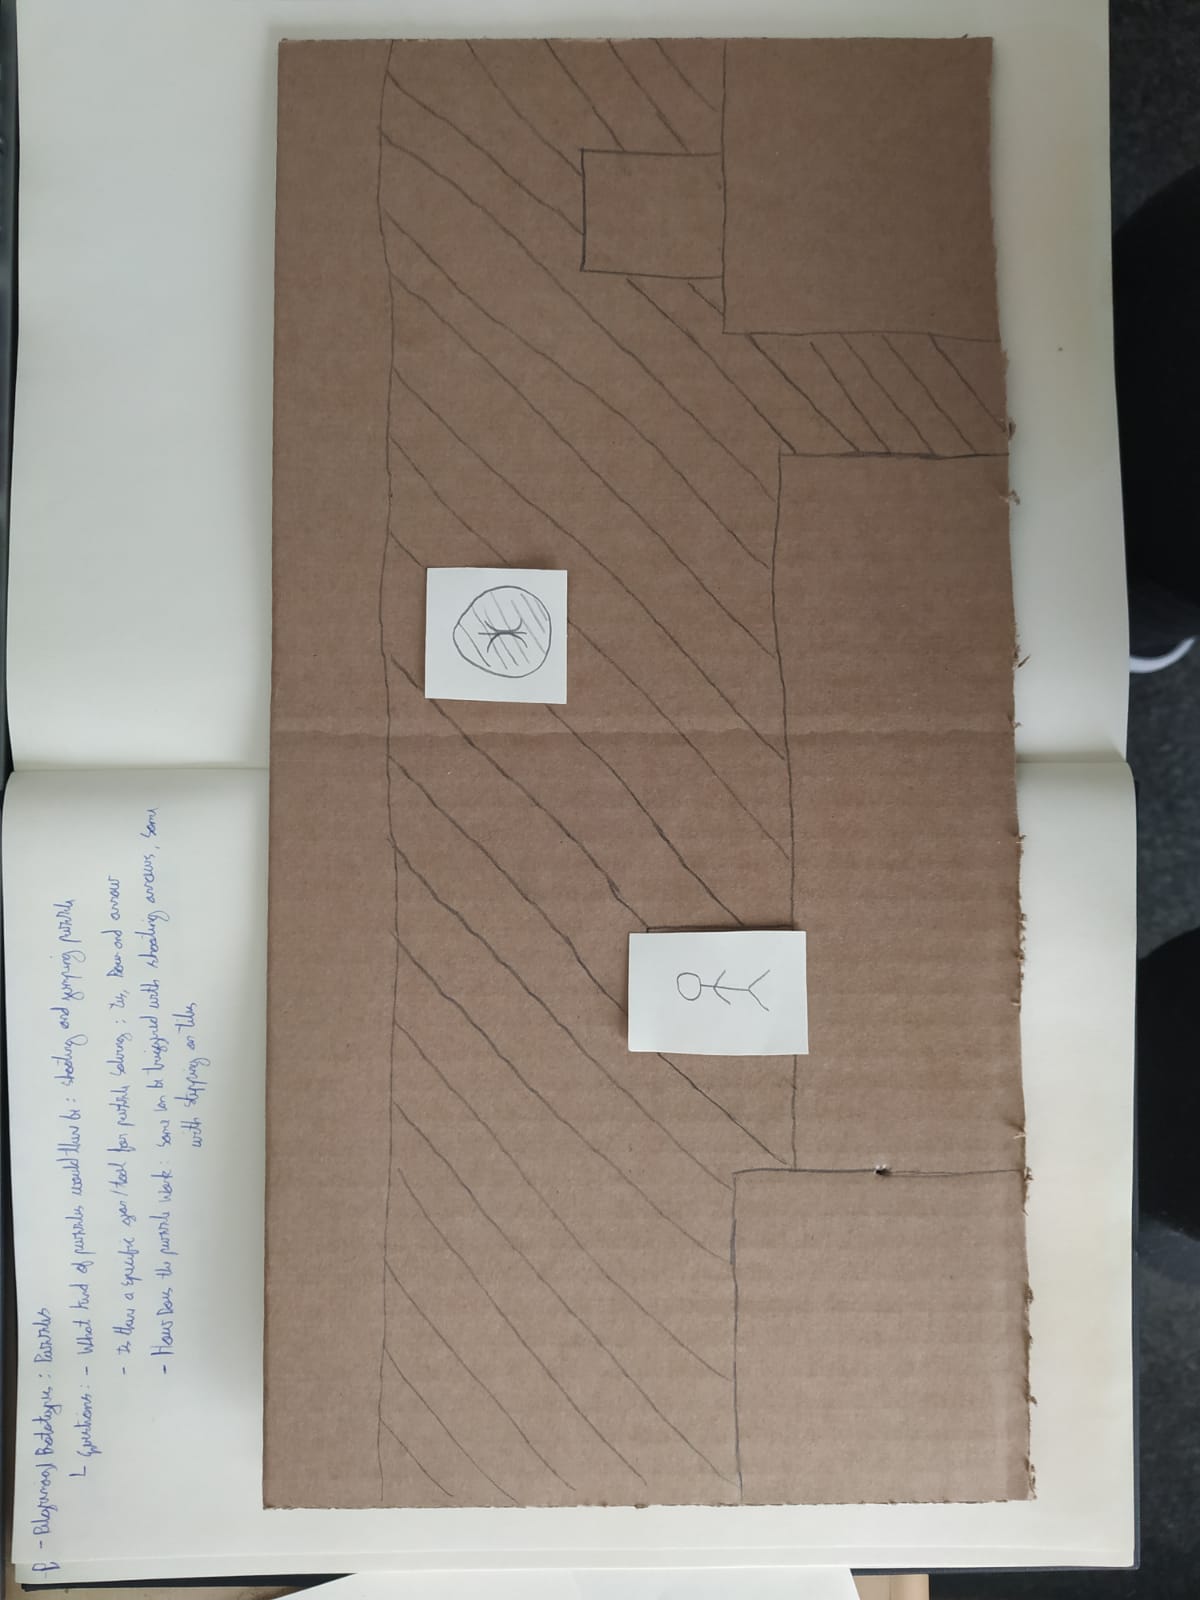 - Prototypes : Puzzles
Questions : - What kind of puzzles would there be : shooting and jumping puzzle
- Is there a specific gear/tool for puzzle solving : Yes, Bow and arrow
- How Does the puzzle work : Some can be triggered with shooting arrows, some
with stepping on tiles